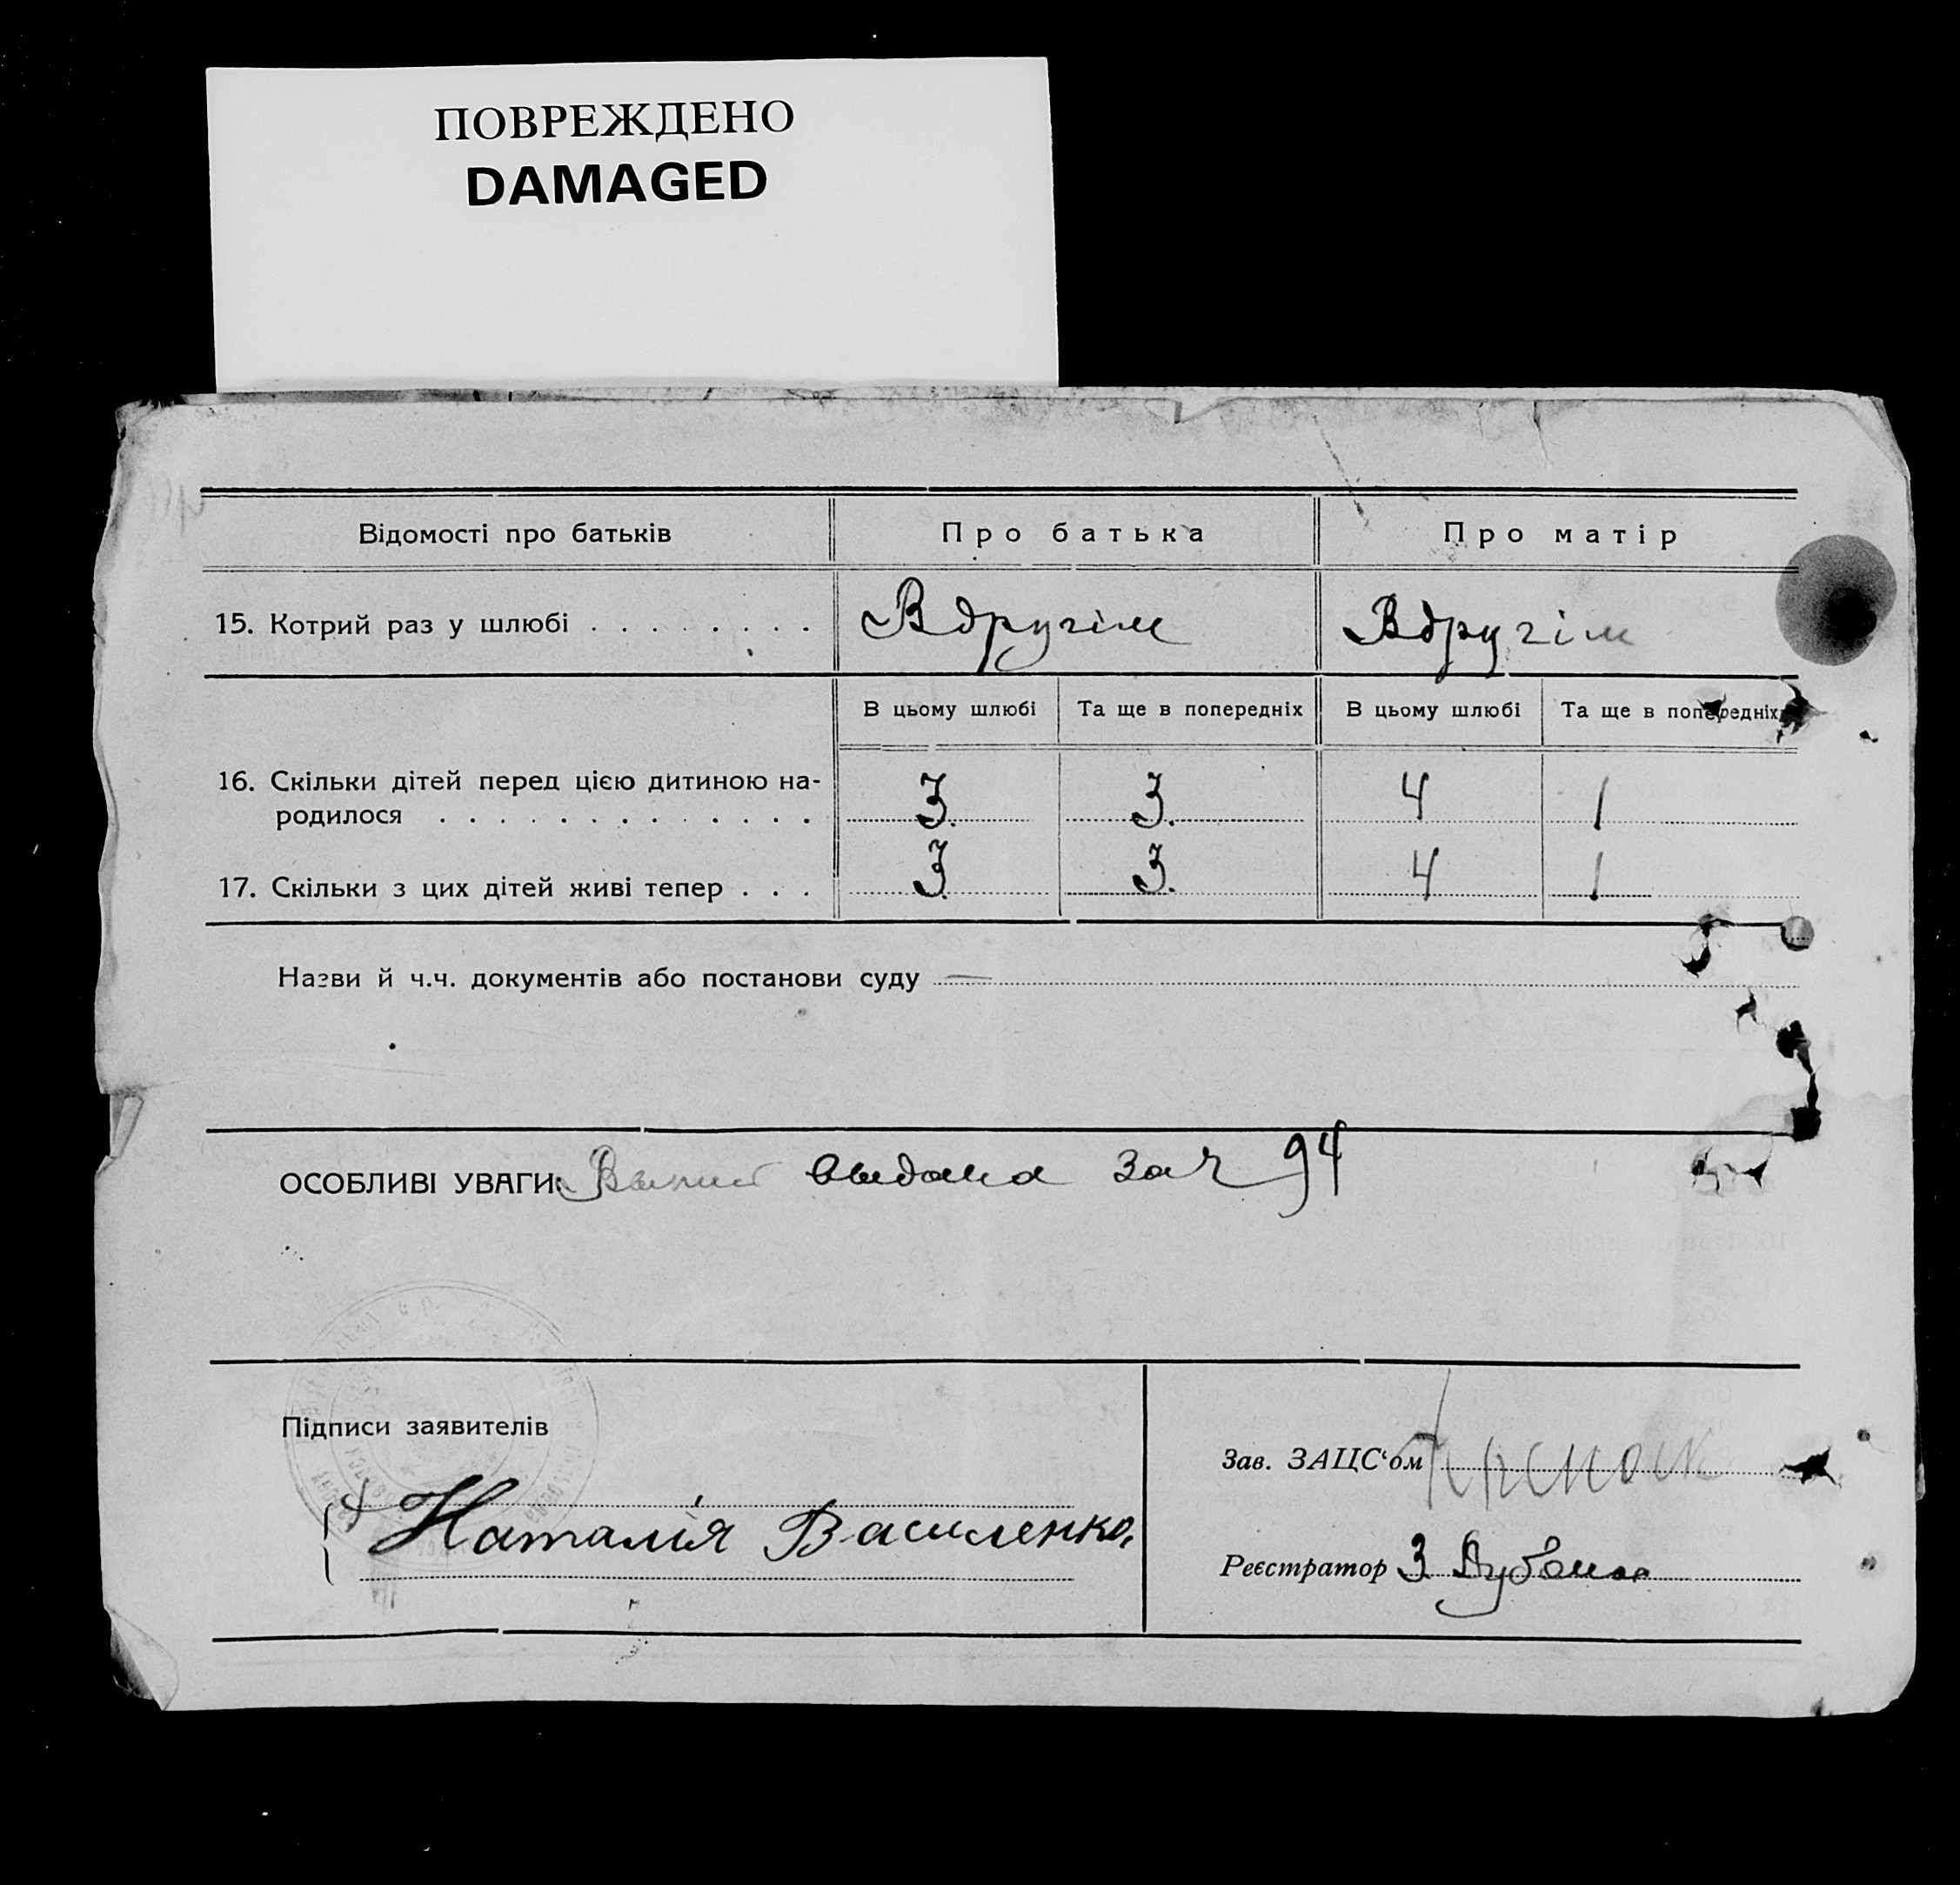 ПОВРЕЖДЕНО
DAMAGED
Відомості про батьків
Про батька
Про матір
15. Котрий раз у шлюбі . . . . . . . .
Вдругім
Вдругім
В цьому шлюбі
Та ще в попередніх
В цьому шлюбі
Та ще в попередніх
16. Скільки дітей перед цією дитиною на-
родилося . . . . . . . . . . . . .
3.
3.
4
1
17. Скільки з цих дітей живі тепер . . .
3
3.
4
1
Назви й ч.ч. документів або постанови суду —
ОСОБЛИВІ УВАГИ: видана за ч 94
Підписи заявителів
Наталія Василенко
Зав. ЗАЦС‘ом
Реєстратор З